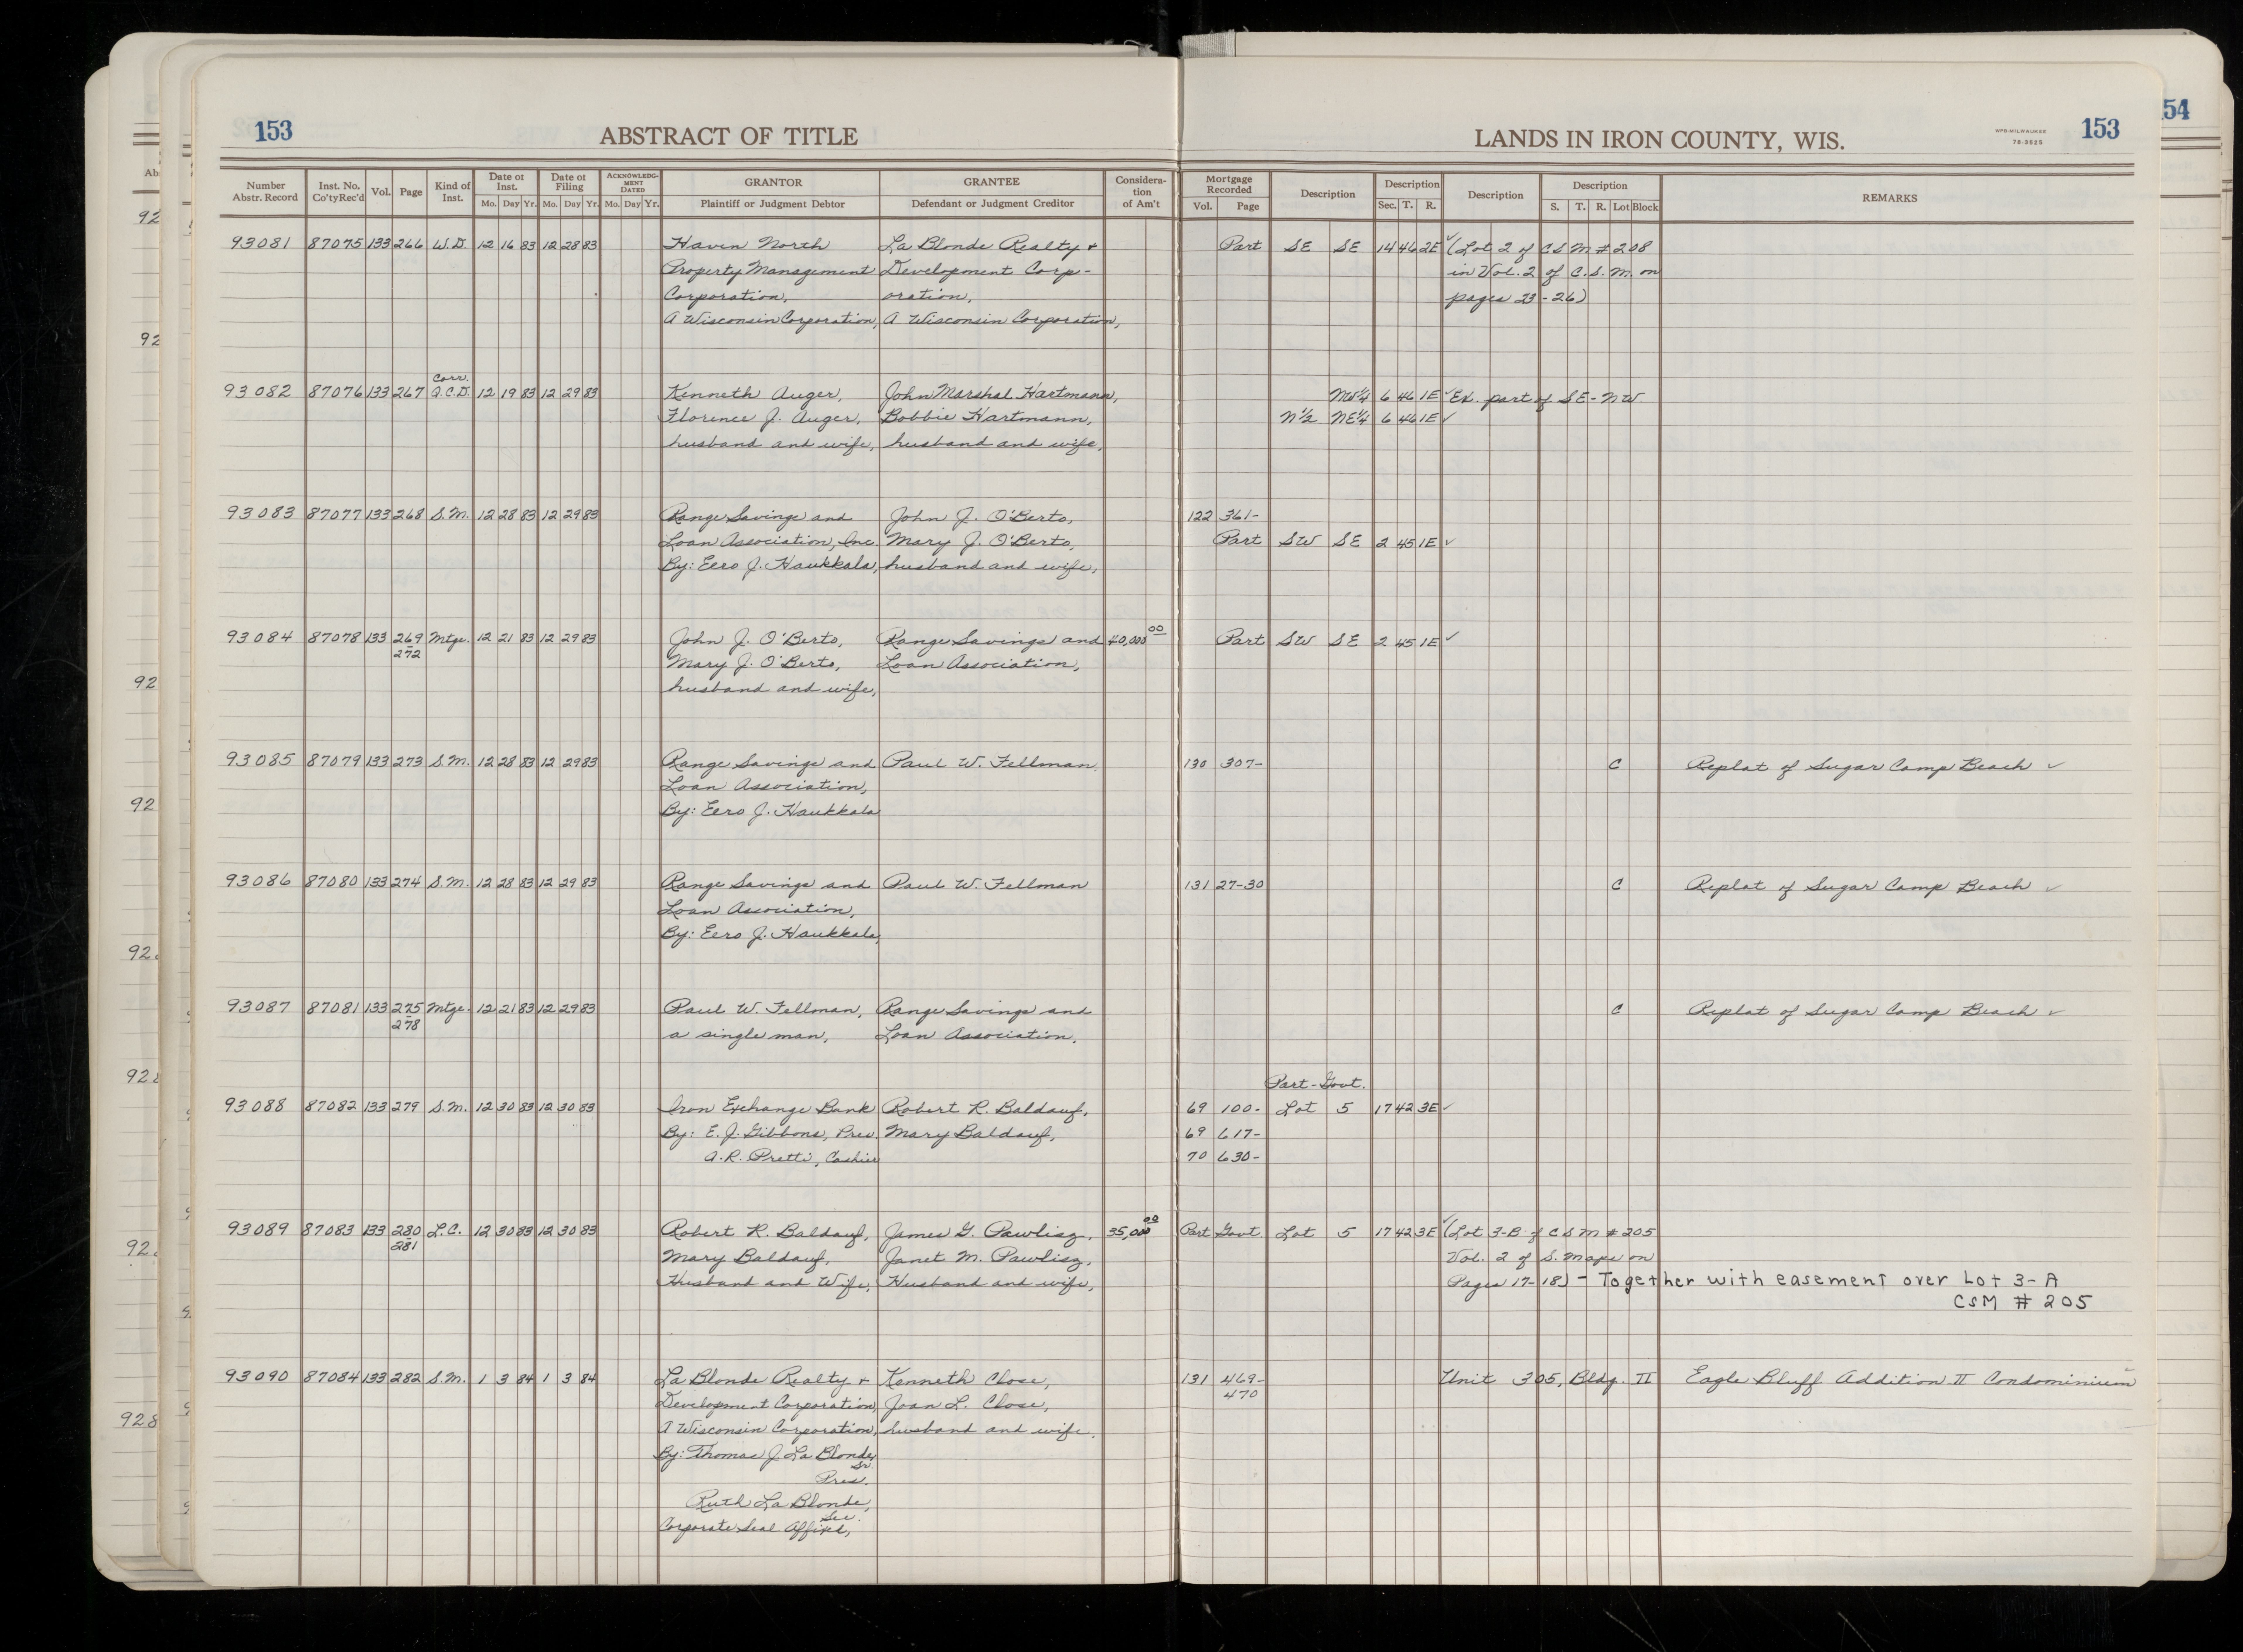 153
ABSTRACT OF TITLE
LANDS IN IRON COUNTY, WIS.
WPB-MILWAUKEE
78-3525
153
54
Number Abstr. Record
Inst. No. Co'ty Rec'd
Vol.
Page
Kind of Inst.
Date of Inst.
Mo. Day Yr.
Date of Filing
Mo. Day Yr.
ACKNOWLEDG-MENT DATED
Mo. Day Yr.
GRANTOR
Plaintiff or Judgment Debtor
GRANTEE
Defendant or Judgment Creditor
Considera-tion of Am't
Mortgage Recorded
Vol. Page
Description
Description
Sec. T. R.
Description
Description
S. T. R. Lot Block
REMARKS
93081 87075 133 266 W.D. 12 16 83 12 28 83 Haven North La Blonde Realty + Part SE SE 14 46 2E ✓ (Lot 2 of CSM # 208
Property Management Development Corp- in Vol. 2 of C.S.M. on
Corporation, oration, pages 23-26)
A Wisconsin Corporation, A Wisconsin Corporation,
Corr.
93082 87076 133 267 Q.C.D. 12 19 83 12 29 83 Kenneth Auger, John Marshal Hartmann, NW¼ 6 46 1E ✓ Ex. part of SE-NW
Florence J. Auger, Bobbie Hartmann, N½ NE¼ 6 46 1E ✓
husband and wife, husband and wife,
93083 87077 133 268 S.M. 12 28 83 12 29 83 Range Savings and John J. O'Berto, 122 361-
Loan Association, Inc. Mary J. O'Berto, Part SW SE 2 45 1E ✓
By: Eero J. Haukkala, husband and wife,
93084 87078 133 269-272 Mtge. 12 21 83 12 29 83 John J. O'Berto, Range Savings and 40,000.00 Part SW SE 2 45 1E ✓
Mary J. O'Berto, Loan Association,
husband and wife,
93085 87079 133 273 S.M. 12 28 83 12 29 83 Range Savings and Paul W. Fellman 130 307- C Replat of Sugar Camp Beach ✓
Loan Association,
By: Eero J. Haukkala
93086 87080 133 274 S.M. 12 28 83 12 29 83 Range Savings and Paul W. Fellman 131 27-30 C Replat of Sugar Camp Beach ✓
Loan Association,
By: Eero J. Haukkala,
93087 87081 133 275-278 Mtge. 12 21 83 12 29 83 Paul W. Fellman, Range Savings and C Replat of Sugar Camp Beach ✓
a single man, Loan Association,
Part-Govt.
93088 87082 133 279 S.M. 12 30 83 12 30 83 Iron Exchange Bank Robert R. Baldauf, 69 100- Lot 5 17 42 3E ✓
By: E.J. Gibbons, Pres. Mary Baldauf, 69 617-
A.R. Pretti, Cashier 70 630-
93089 87083 133 280-281 L.C. 12 30 83 12 30 83 Robert R. Baldauf, James G. Pawlisz, 35,000.00 Part Govt. Lot 5 17 42 3E ✓ (Lot 3-B of CSM # 205
Mary Baldauf, Janet M. Pawlisz, Vol. 2 of S. Maps on
Husband and Wife, Husband and wife, Pages 17-18) - Together with easement over Lot 3-A
CSM # 205
93090 87084 133 282 S.M. 1 3 84 1 3 84 La Blonde Realty + Kenneth Close, 131 469- Unit 305, Bldg. II Eagle Bluff Addition II Condominium
Development Corporation, Joan L. Close, 470
A Wisconsin Corporation, husband and wife.
By: Thomas J. La Blonde,
Sr.
Pres.
Ruth La Blonde,
Sec.
Corporate Seal Affixed,